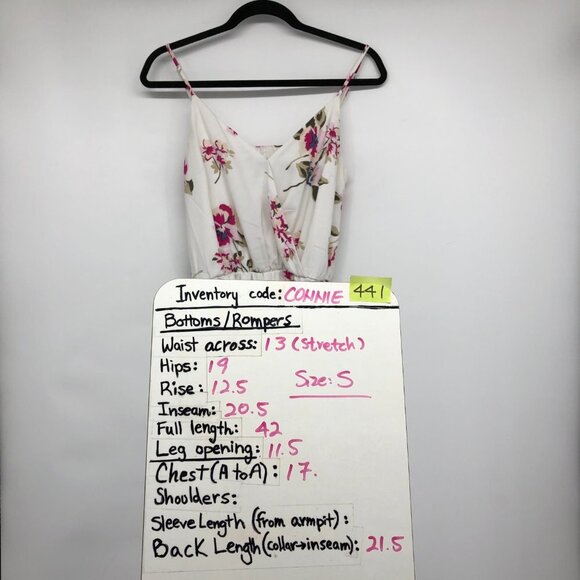 Inventory code: CONNIE 441
Bottoms/Rompers
Waist across: 13 (stretch)
Hips: 19
Rise: 12.5
Size: S
Inseam: 20.5
Full length: 42
Leg opening: 11.5
Chest (A to A): 17.
Shoulders:
Sleeve Length (from armpit):
Back Length (collar→inseam): 21.5